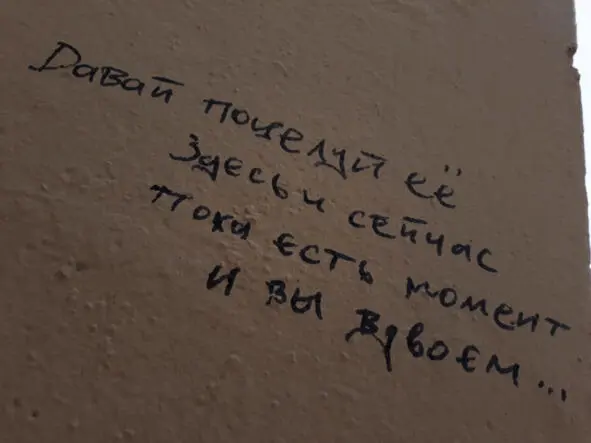 Давай поцелуй её
Здесь и сейчас
Пока есть момент
и вы вдвоем...